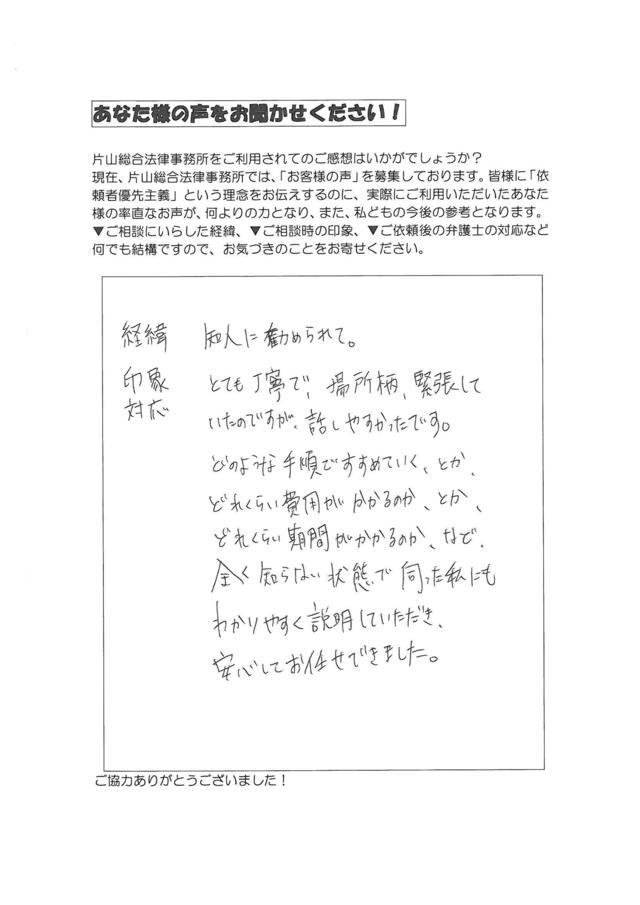 あなた様の声をお聞かせください！
片山総合法律事務所をご利用されてのご感想はいかがでしょうか？
現在、片山総合法律事務所では、「お客様の声」を募集しております。皆様に「依
頼者優先主義」という理念をお伝えするのに、実際にご利用いただいたあなた
様の率直なお声が、何よりの力となり、また、私どもの今後の参考となります。
▼ご相談にいらした経緯、▼ご相談時の印象、▼ご依頼後の弁護士の対応など
何でも結構ですので、お気づきのことをお寄せください。
経緯 知人に勧められて。
印象 とても丁寧で、場所柄、緊張して
対応 いたのですが、話しやすかったです。
どのような手順ですすめていく、とか、
どれくらい費用がかかるのか、とか、
どれくらい期間がかかるのか、など、
全く知らない状態で伺った私にも
わかりやすく説明していただき、
安心してお任せできました。
ご協力ありがとうございました！